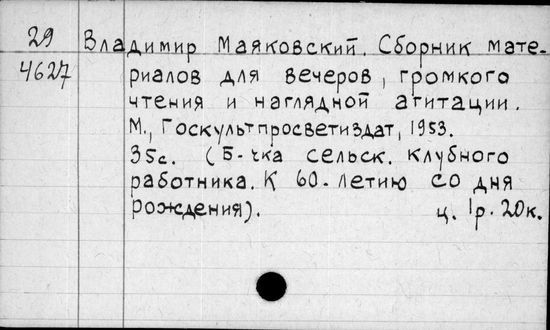 29 Владимир Маяковский. Сборник мате-
4627 риалов для вечеров, громкого
чтения и наглядной агитации.
М., Госкультпросветиздат, 1953.
35с. (Б-чка сельск. клубного
работника. К 60-летию со дня
рождения). ц. 1р. 20к.